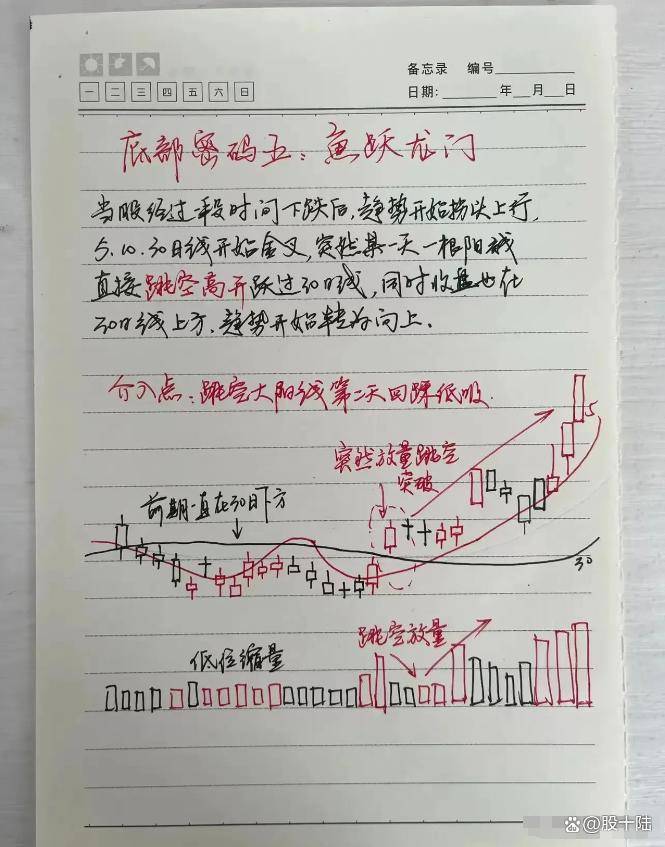 备忘录 编号
一 二 三 四 五 六 日
日期: 年 月 日
底部密码五:鱼跃龙门
当股经过一段时间下跌后,趋势开始拐头上行,
5.10.30日线开始金叉,突然某一天一根阳线
直接跳空高开跃过30日线,同时收盘也在
30日线上方,趋势开始转为向上.
介入点:跳空大阳线第二天回踩低吸.
突然放量跳空
突破
5
前期一直在30日下方
30
跳空放量
低位缩量
@股十陆